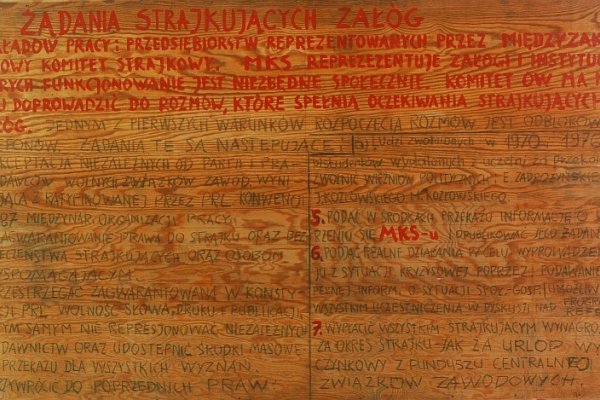 ŻĄDANIA STRAJKUJĄCYCH ZAŁÓG
KŁADÓW PRACY i PRZEDSIĘBIORSTW REPREZENTOWANYCH PRZEZ MIĘDZYZAK
OWY KOMITET STRAJKOWY. MKS REPREZENTUJE ZAŁOGI I INSTYTU
RYCH FUNKCJONOWANIE JEST NIEZBĘDNE SPOŁECZNIE KOMITET ÓW MA N
U DOPROWADZIĆ DO ROZMÓW, KTÓRE SPEŁNIĄ OCZEKIWANIA STRAJKUJĄCYCH
ÓG.
JEDNYM Z PIERWSZYCH WARUNKÓW ROZPOCZĘCIA ROZMÓW JEST ODBLOKOW
FONÓW. ŻĄDANIA TE SĄ NASTĘPUJĄCE:
KCEPTACJA NIEZALEŻNYCH OD PARTII I PRA
DAWCÓW WOLNYCH ZWIĄZKÓW ZAWOD. WYNI
JĄCA Z RATYFIKOWANEJ PRZEZ PRL KONWENCJI
87 MIĘDZYNAR. ORGANIZACJI PRACY.
AGWARANTOWANIE PRAWA DO STRAJKU ORAZ BEZ
ECZEŃSTWA STRAJKUJĄCYCH ORAZ OSOBOM
SPOMAGAJĄCYM.
ZESTRZEGAĆ ZAGWARANTOWANĄ W KONSTY
CJI PRL WOLNOŚĆ SŁOWA, DRUKU I PUBLIKACJI
TYM SAMYM NIE REPRESJONOWAĆ NIEZALEŻNYCH
DAWNICTW ORAZ UDOSTĘPNIĆ ŚRODKI MASOWE
PRZEKAZU DLA WSZYSTKICH WYZNAŃ.
ZYWRÓCIĆ DO POPRZEDNICH PRAW:
a) Ludzi zwolnionych w 1970 i 1976
b) studentów wydalonych z uczelni za przekon
ZWOLNIĆ WIĘŹNIÓW POLITYCZNYCH E ZADROŻYŃSKIE
J. KOZŁOWSKIEGO M. KOZŁOWSKIEGO.
5. PODAĆ W ŚRODKACH PRZEKAZU INFORMACJE O U
RZENIU SIĘ MKS-u I OPUBLIKOWAĆ JEGO ŻĄDANI
6. PODAĆ REALNE DZIAŁANIA W CELU WYPROWADZEN
JU Z SYTUACJI KRYZYSOWEJ POPRZEZ: PODAWANIE
PEŁNEJ INFORM. O SYTUACJI SPOŁ-GOSP. UMOŻLIWI
WSZYSTKIM UCZESTNICZENIA W DYSKUSJI NAD PROGRA
REFO
7. WYPŁACIĆ WSZYSTKIM STRAJKUJĄCYM WYNAGRO
ZA OKRES STRAJKU JAK ZA URLOP WY
CZYNKOWY Z FUNDUSZU CENTRALNEJ
ZWIĄZKÓW ZAWODOWYCH.